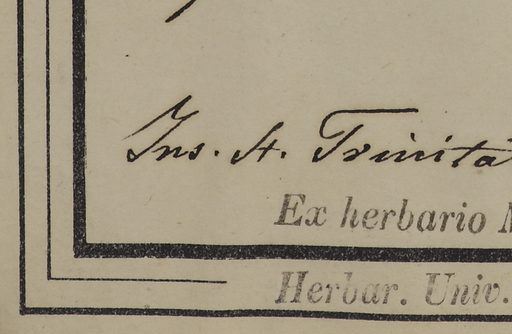 Ins. St. Trinita
Ex herbario
Herbar. Univ.